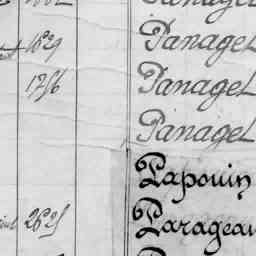 1829 Panagel
1756 Panagel
Panagel
Papouin
2625 Parageau